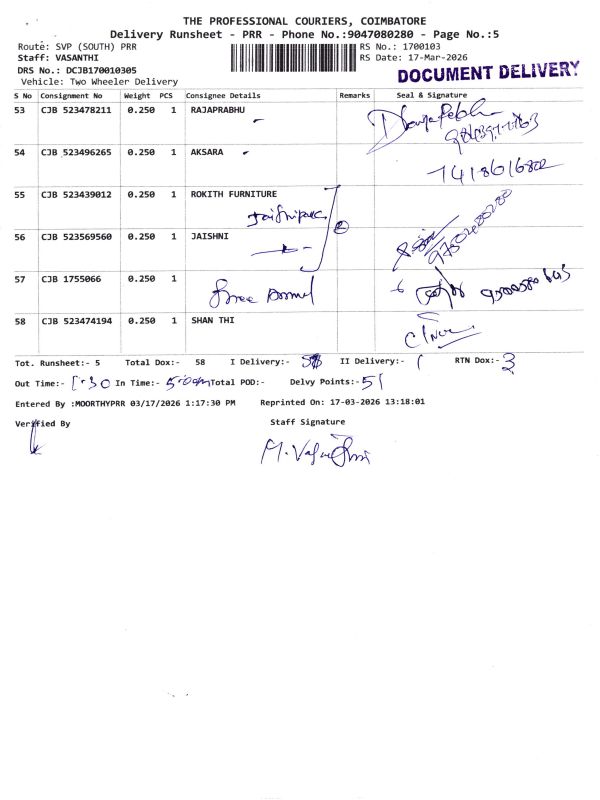 THE PROFESSIONAL COURIERS, COIMBATORE
Delivery Runsheet - PRR - Phone No.:9047080280 - Page No.:5
Route: SVP (SOUTH) PRR RS No.: 1700103
Staff: VASANTHI RS Date: 17-Mar-2026
DRS No.: DCJB170010305 DOCUMENT DELIVERY
Vehicle: Two Wheeler Delivery
S No Consignment No Weight PCS Consignee Details Remarks Seal & Signature
53 CJB 523478211 0.250 1 RAJAPRABHU
54 CJB 523496265 0.250 1 AKSARA
7418616802
55 CJB 523439012 0.250 1 ROKITH FURNITURE
56 CJB 523569560 0.250 1 JAISHNI
57 CJB 1755066 0.250 1
58 CJB 523474194 0.250 1 SHAN THI
Tot. Runsheet:- 5 Total Dox:- 58 I Delivery:- II Delivery:- 1 RTN Dox:- 3
Out Time:- 1-30 In Time:- 5:00pm Total POD:- Delvy Points:- 51
Entered By :MOORTHYPRR 03/17/2026 1:17:30 PM Reprinted On: 17-03-2026 13:18:01
Verified By Staff Signature